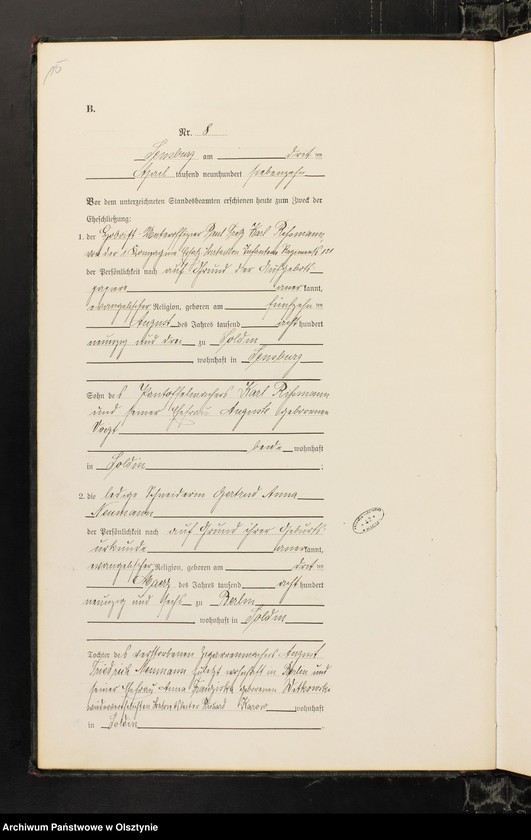 B.
Nr. 8
Sensburg am drei ten
April tausend neunhundert siebenzehn
Vor dem unterzeichneten Standesbeamten erschienen heute zum Zweck der
Eheschließung:
1. der Karl Rehmann
von der Kompagnie Infanterie Regiments
der Persönlichkeit nach auf Grund der Aufgebots
papiere anerkannt,
evangelischer Religion, geboren am fünfzehn ten
August des Jahres tausend acht hundert
neunzig und drei zu Soldin
wohnhaft in Sensburg
Sohn des Pantoffelmachers Karl Rehmann
und seiner Ehefrau Auguste geborenen
beide wohnhaft
in Soldin ;
2. die ledige Schneiderin Gertrud Anna
Neumann
der Persönlichkeit nach auf Grund ihrer Geburts
urkunde anerkannt,
evangelischer Religion, geboren am drei ten
März des Jahres tausend acht hundert
neunzig und sechs zu Berlin
wohnhaft in Soldin
Tochter des verstorbenen Zigarrenmachers August
Friedrich Neumann zuletzt wohnhaft in Berlin und
seiner Ehefrau Anna geborenen
wohnhaft
in Soldin
Archiwum Państwowe w Olsztynie